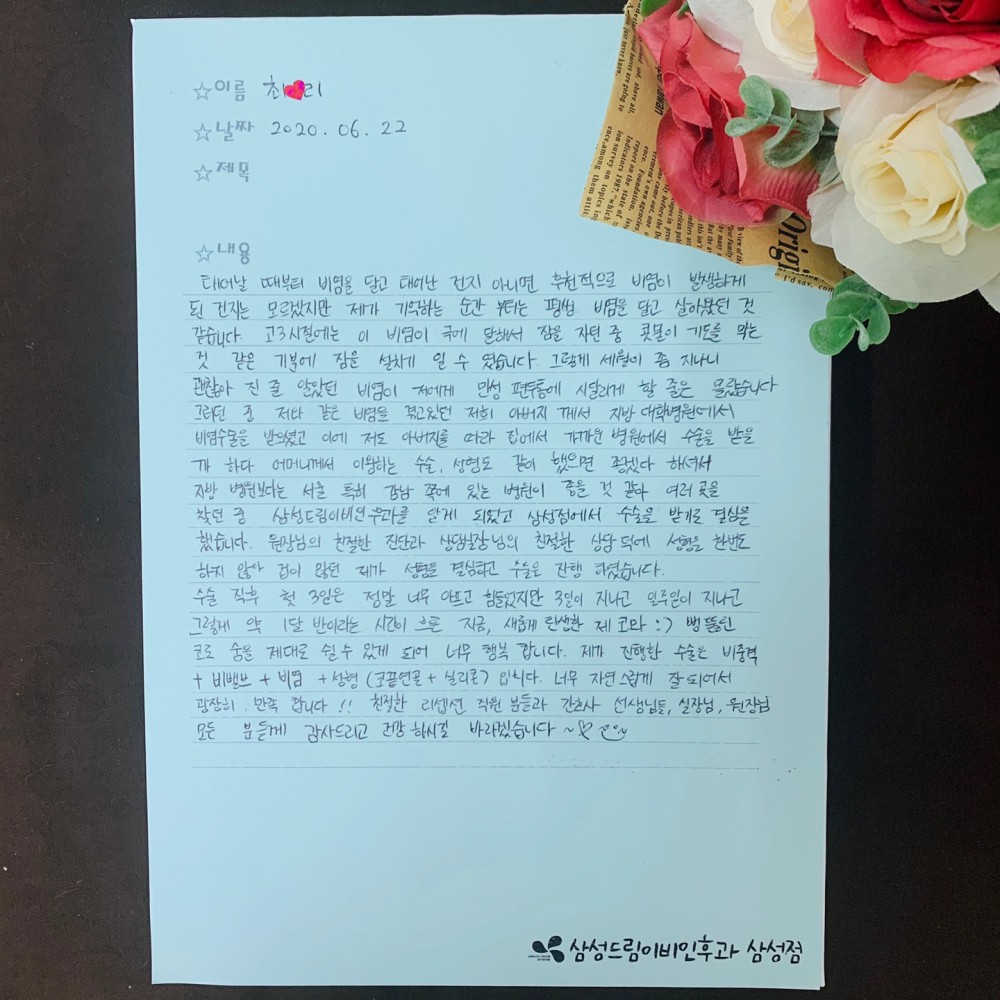 ☆이름 최❤리
☆날짜 2020.06.22
☆제목
☆내용
태어날 때부터 비염을 달고 태어난 건지 아니면 후천적으로 비염이 발생하게
된 건지는 모르겠지만 제가 기억하는 순간 부터는 평생 비염을 달고 살아왔던 것
같습니다. 고3시절에는 이 비염이 극에 달해서 잠을 자던 중 콧물이 기도를 막는
것 같은 기분에 잠을 설치기 일 수 였습니다. 그렇게 세월이 좀 지나니
괜찮아 진 줄 알았던 비염이 저에게 만성 편두통에 시달리게 할 줄은 몰랐습니다
그러던 중 저와 같은 비염을 겪고있던 저희 아버지 께서 지방 대학병원에서
비염수술을 받으셨고 이에 저도 아버지를 따라 집에서 가까운 병원에서 수술을 받을
까 하다 어머니께서 이왕하는 수술, 성형도 같이 했으면 좋겠다 하셔서
지방 병원보다는 서울 특히 강남 쪽에 있는 병원이 좋을 것 같아 여러 곳을
찾던 중 삼성드림이비인후과를 알게 되었고 삼성점에서 수술을 받기로 결심을
했습니다. 원장님의 친절한 진단과 상담실장님의 친절한 상담 덕에 성형을 한번도
하지 않아 겁이 많던 제가 성형을 결심하고 수술을 진행 하였습니다.
수술 직후 첫 3일은 정말 너무 아프고 힘들었지만 3일이 지나고 일주일이 지나고
그렇게 약 1달 반이라는 시간이 흐른 지금, 새롭게 탄생한 제 코와 :) 뻥 뚫린
코로 숨을 제대로 쉴 수 있게 되어 너무 행복 합니다. 제가 진행한 수술은 비중격
+ 비밸브 + 비염 + 성형 (코끝연골 + 실리콘) 입니다. 너무 자연스럽게 잘 되어서
굉장히 만족 합니다!! 친절한 리셉션 직원 분들과 간호사 선생님들, 실장님, 원장님
모든 분들께 감사드리고 건강 하시길 바라겠습니다 ~
삼성드림이비인후과 삼성점